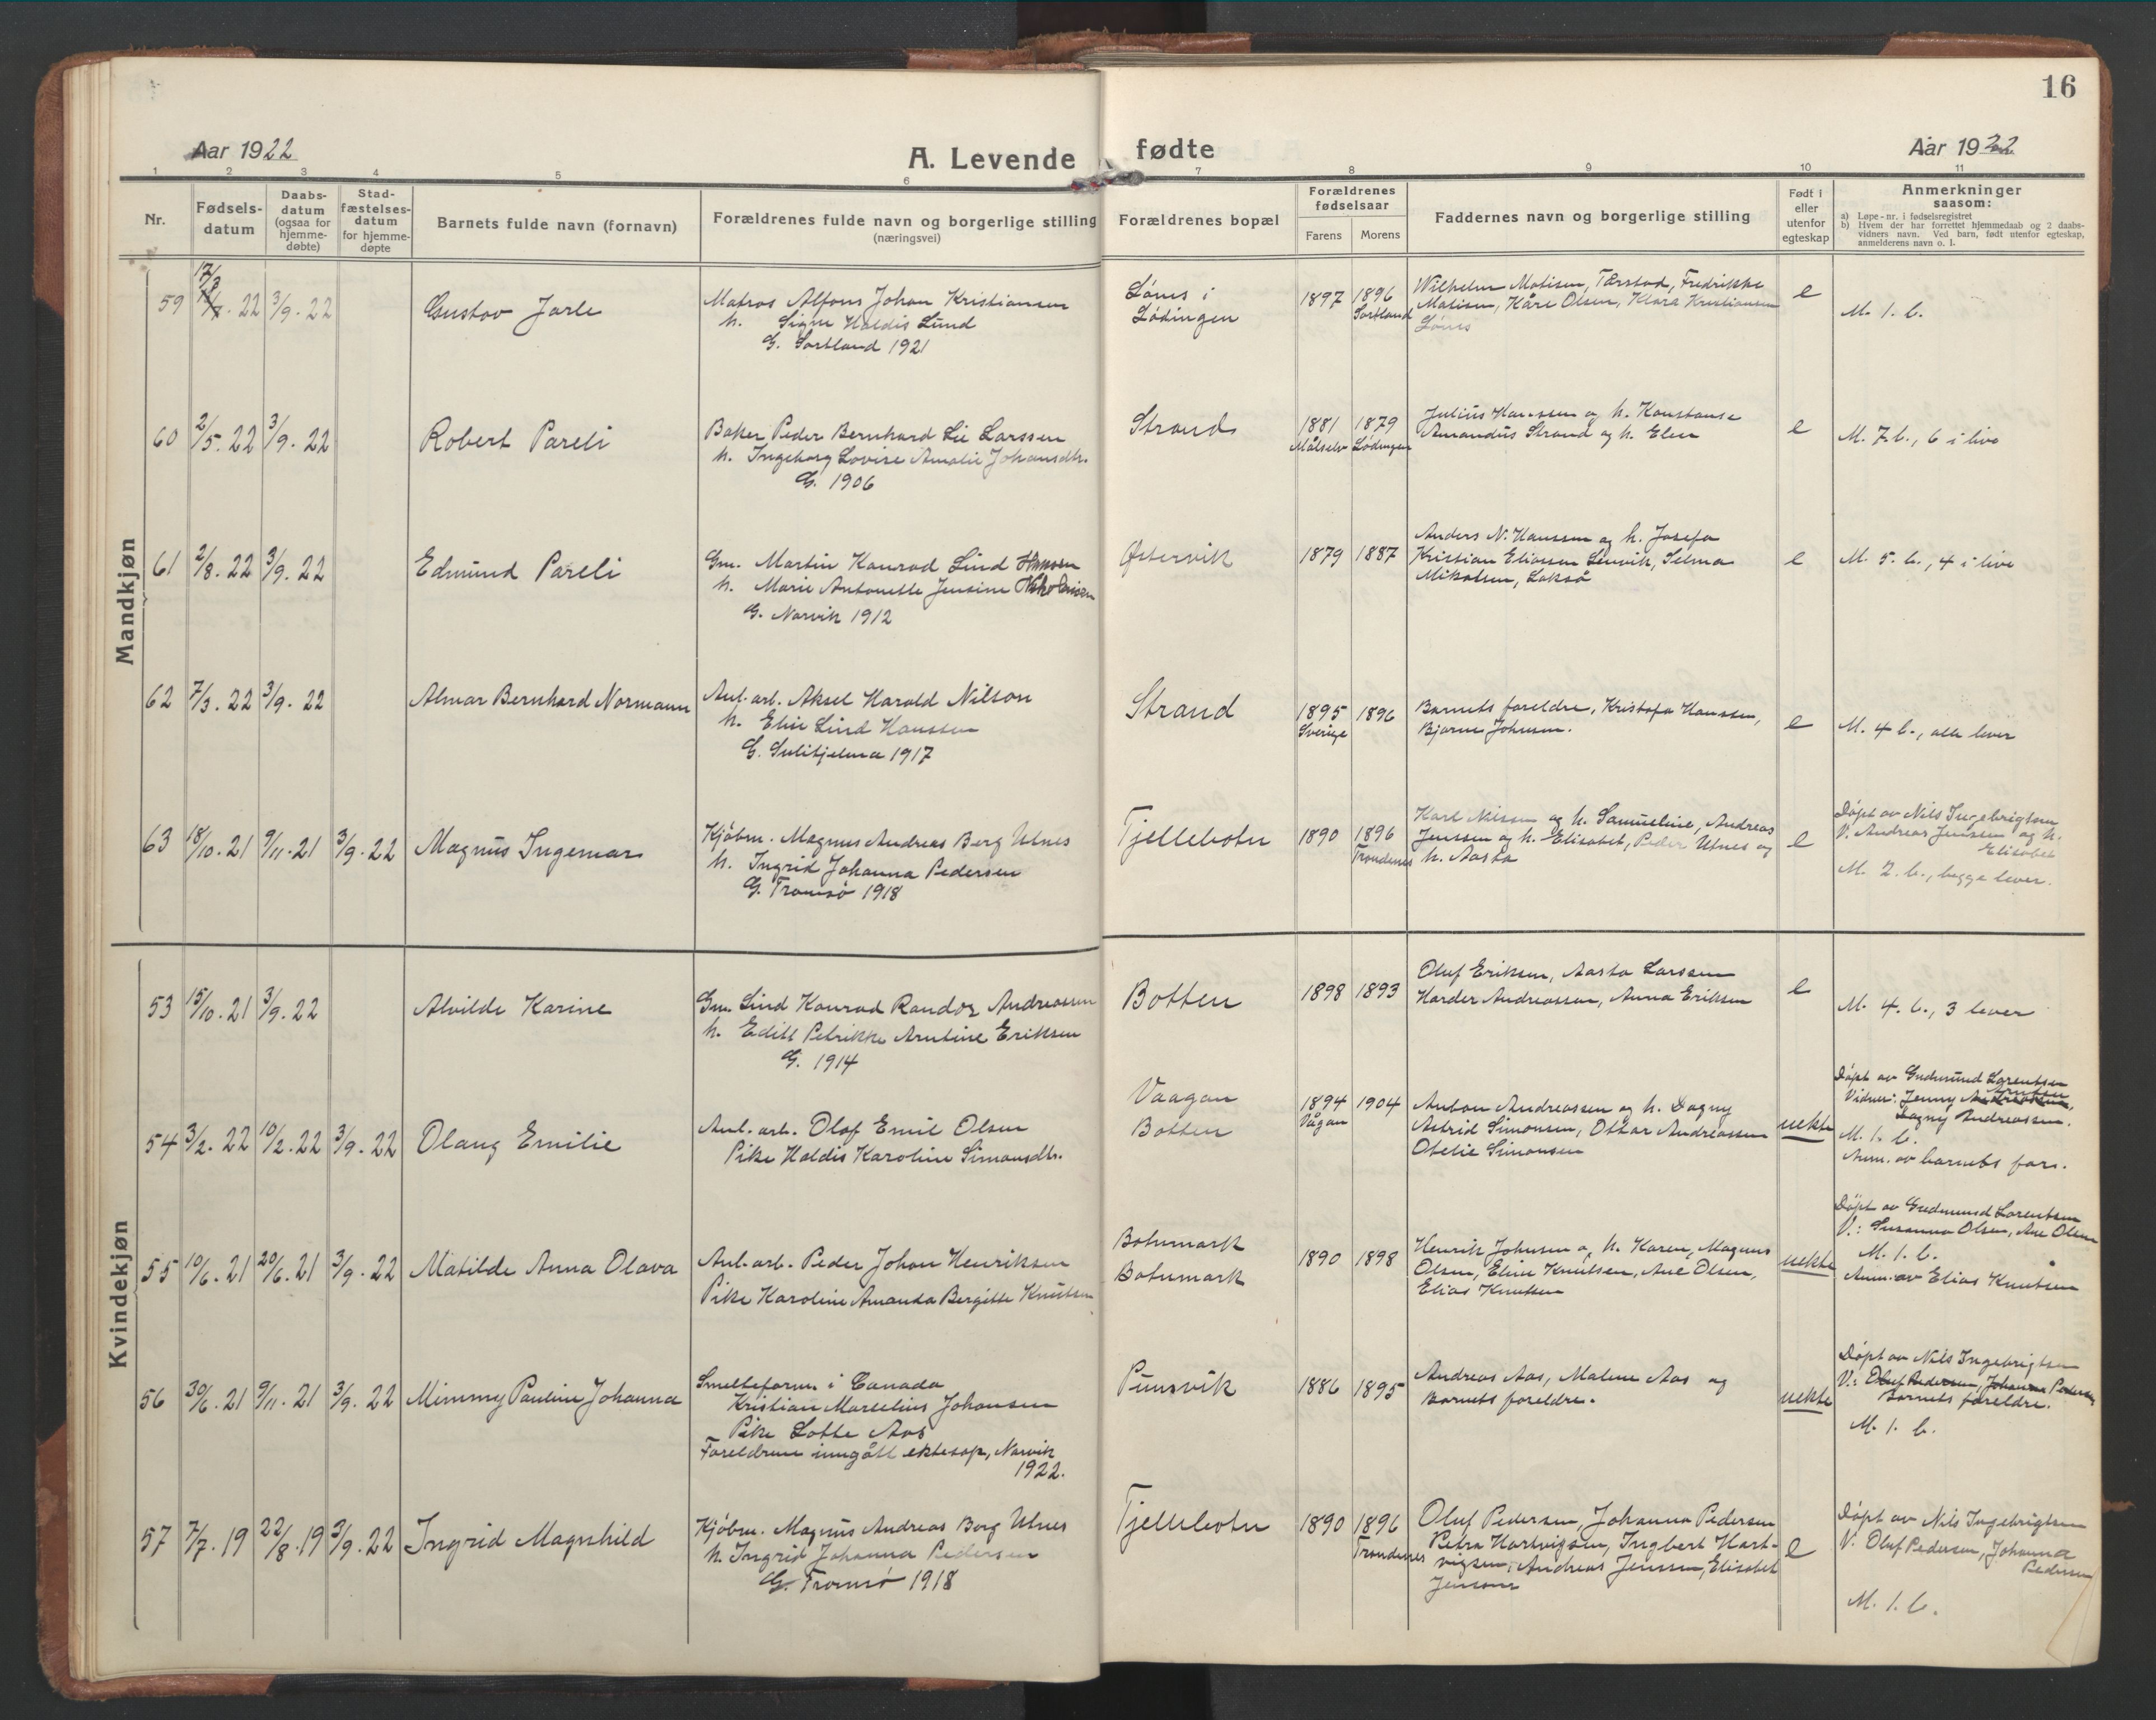 16
Aar 1922
A. Levende fødte
Aar 1922
1 2 3 4 5 6 7 8 9 10 11
Nr.
Fødsels-
datum
Daabs-
datum
(ogsaa for
hjemme-
døbte)
Stad-
fæstelses-
datum
for hjemme-
døpte
Barnets fulde navn (fornavn)
Forældrenes fulde navn og borgerlige stilling
(næringsvei)
Forældrenes bopæl
Forældrenes
fødselsaar
Farens Morens
Faddernes navn og borgerlige stilling
Født i
eller
utenfor
egteskap
Anmerkninger
saasom:
a) Løpe-nr. i fødselsregistret
b) Hvem der har forrettet hjemmedaab og 2 daabs-
vidners navn. Ved barn, født utenfor egteskap,
anmelderens navn o. l.
Mandkjøn
59 3/9. 22
Gustav Jarle
Matros Alfons Johan Kristiansen
h. Signe Haldis Lund
G. Sortland 1921
Lønes i
Lødingen
1897 1896
Sortland
Wilhelm Matisen, Tårstad, Fredrikke
Matisen, Kåre Olsen, Klara Kristiansen
Lønes
e
M. 1. b.
60 2/5. 22 3/9. 22
Robert Pareli
Baker Peder Bernhard Lie Larssen
h. Ingeborg Lovise Amalie Johansdtr.
G. 1906
Strand
1881 1879
Målselv Lødingen
Julius Hanssen og h. Konstanse
Amandus Strand og h. Elen
e
M. 7. b., 6 i live
61 2/8. 22 3/9. 22
Edmund Pareli
Gm. Martin Konrad Lind Hansen
h. Marie Antonette Jensine Nikolaisen
G. Narvik 1912
Østervik
1879 1887
Anders N. Hanssen og h. Josefa
Kristian Eliassen Lenvik, Selma
Mikalsen, Lakså
e
M. 5. b., 4 i live
62 7/3. 22 3/9. 22
Almar Bernhard Normann
Anl. arb. Aksel Harald Nilson
h. Elin Lind Hanssen
G. Sulitjelma 1917
Strand
1895 1896
Sverige
Barnets foreldre, Kristofa Hanssen,
Bjarne Johnsen.
e
M. 4 b., alle lever
63 18/10. 21 9/11. 21 3/9. 22
Magnus Ingemar
Kjøbm. Magnus Andreas Berg Utnes
h. Ingrid Johanna Pedersen
G. Tromsø 1918
Tjellebotn
1890 1896
Trondenes
Karl Nilsen og h. Samueline, Andreas
Jenssen og h. Elisabet, Peder Utnes og
h. Aasta
e
Døpt av Nils Ingebrigtsen
V. Andreas Jenssen og h.
Elisabet
M. 2. b., begge lever.
Kvindekjøn
53 15/10. 21 3/9. 22
Alvilde Karine
Gm. Lind Konrad Randor Andreassen
h. Edill Petrikke Arntine Eriksen
G. 1914
Botten
1898 1893
Oluf Eriksen, Aasta Larssen
Harder Andreassen, Anna Eriksen
e
M. 4. b., 3 lever
54 3/2. 22 10/2. 22 3/9. 22
Olaug Emilie
Anl. arb. Olaf Emil Olsen
Pike Haldis Karoline Simonsdtr.
Vaagan
Botten
1894 1904
Vågan
Anton Andreassen og h. Dagny
Astrid Simonsen, Ottar Andreassen
Otelie Simonsen
uekte
Døpt av Gudmund Lorentsen
Vidner: Jenny
Dagny Andreassen.
M. 1. b.
Anm. av barnets far.
55 10/6. 21 20/6. 21 3/9. 22
Matilde Anna Olava
Anl. arb. Peder Johan Henriksen
Pike Karoline Amanda Bergitte Knutsen
Botnmark
Botnmark
1890 1898
Henrik Johnsen og h. Karen, Magnus
Olsen, Eline Knutsen, Ane Olsen,
Elias Knutsen
uekte
Døpt av Gudmund Lorentsen
V.: Susanna Olsen, Ane Olsen
M. 1. b.
Anm. av Elias Knutsen
56 30/6. 21 9/11. 21 3/9. 22
Mimmy Pauline Johanna
Smelteform. i Canada
Kristian Marselius Johansen
Pike Lotte Aas
Foreldrene inngått ektesap, Narvik
1922.
Punsvik
1886 1895
Andreas Aas, Malene Aas og
Barnets foreldre.
uekte
Døpt av Nils Ingebrigtsen
V.: Oluf Pedersen, Johanna Pedersen
Barnets foreldre.
M. 1. b.
57 7/7. 19 22/8. 19 3/9. 22
Ingrid Magnhild
Kjøbm. Magnus Andreas Berg Utnes
h. Ingrid Johanna Pedersen
G. Tromsø 1918
Tjellebotn
1890 1896
Trondenes
Oluf Pedersen, Johanna Pedersen
Petra Hartvigsen, Ingbert Hart-
vigsen, Andreas Jenssen, Elisabet
Jensen
e
Døpt av Nils Ingebrigtsen
V. Oluf Pedersen, Johanna
Pedersen
M. 1. b.